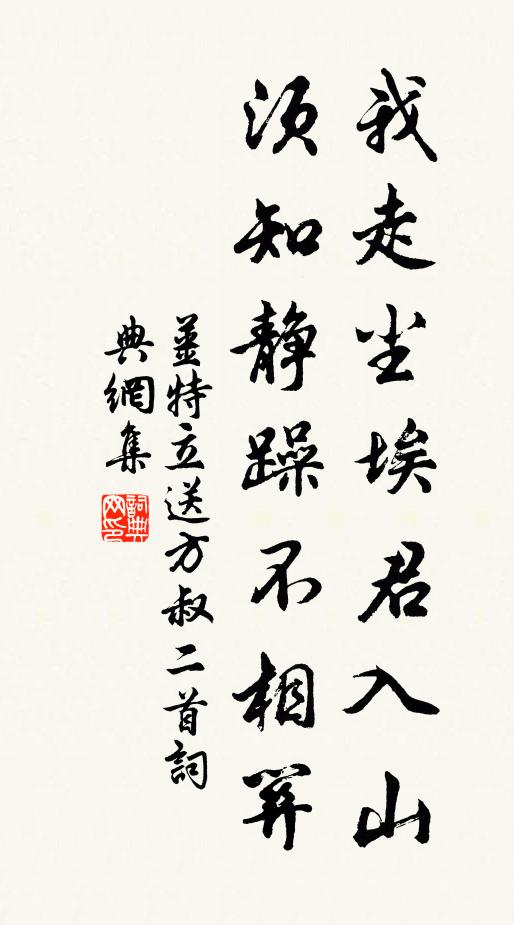 我走尘埃君入山
須知静躁不相關
薑特立送方叔二首詞
典網集
詞典
网印